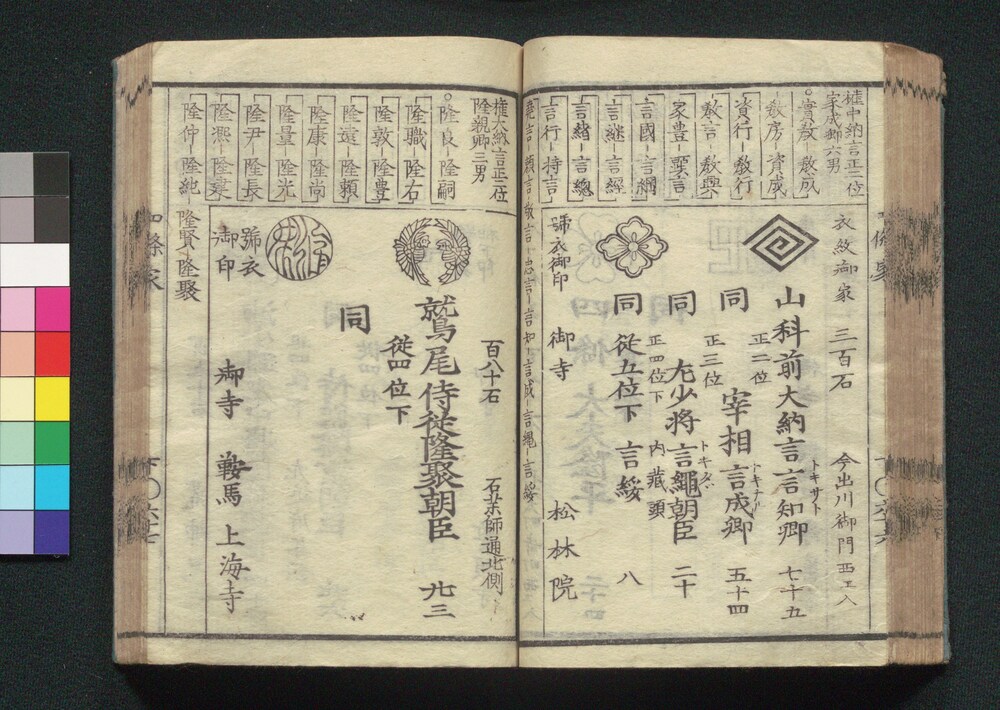 權中納言正二位
家成卿六男
實教-教成
教房-資成
資行-教行
教言-教興
家豐-顯言
言國-言綱
言繼-言經
言緒-言總
言行-持言
堯言-頼言-敬言-忠言-言知-言成-言繩-言綏
衣紋御家
三百石
今出川御門西エ入
山科前大納言言知卿
トキサト
七十五
正二位
同
宰相言成卿
トキナリ
五十四
正三位
同
左少將言繩朝臣
トキダヽ
二十
正四位下
内藏頭
同
從五位下
言綏
八
號衣御印
御寺
松林院
權大納言正二位
隆親卿三男
隆良-隆嗣
隆職-隆右
隆敦-隆豊
隆遠-隆頼
隆康-隆尚
隆量-隆光
隆尹-隆長
隆凞-隆建
隆仲-隆純
隆賢-隆聚
百八十石
石藥師通北側
鷲尾侍從隆聚朝臣
九三
從四位下
同
號衣
御印
御寺
鞍馬
上海寺